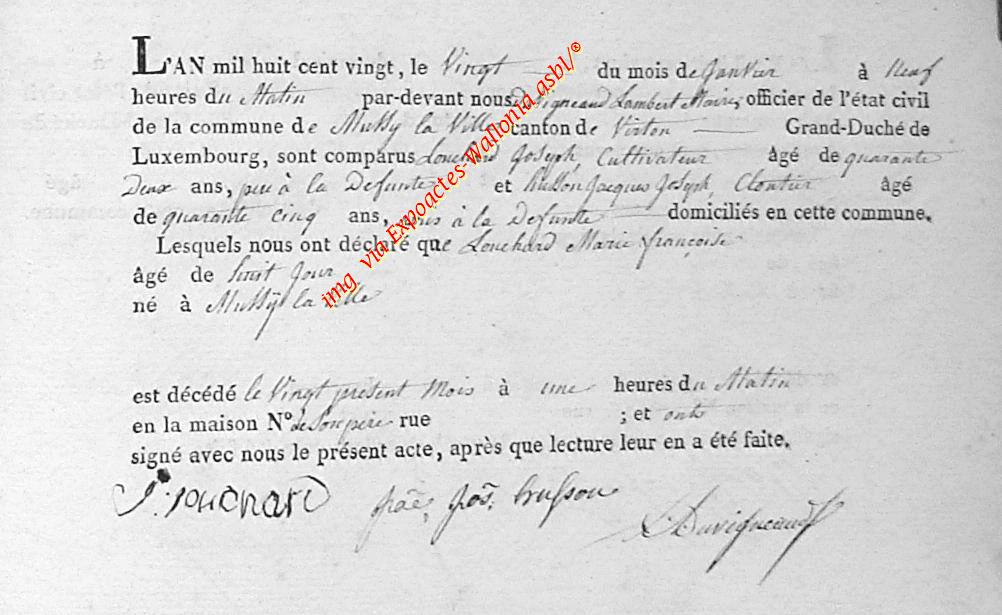 L'AN mil huit cent vingt, le Vingt du mois de Janvier à Neuf
heures du Matin par-devant nous Duvigneaud Lambert Maire, officier de l'état civil
de la commune de Mussy la Ville canton de Virton Grand-Duché de
Luxembourg, sont comparus Louchard Joseph, Cultivateur âgé de quarante
Deux ans, pere à la Defunte et husson Jacques Joseph, Cloutier âgé
de quarante Cinq ans, à la Defunte domiciliés en cette commune.
Lesquels nous ont déclaré que Louchard Marie françoise
âgé de huit Jour
né à Mussÿ la ville
est décédé le Vingt présent Mois à une heures du Matin
en la maison N° de Son père rue ; et ont
signé avec nous le présent acte, après que lecture leur en a été faite.
J. Louchard jos. husson L. Duvigneaud
img via Expoactes-Wallonia asbl/©